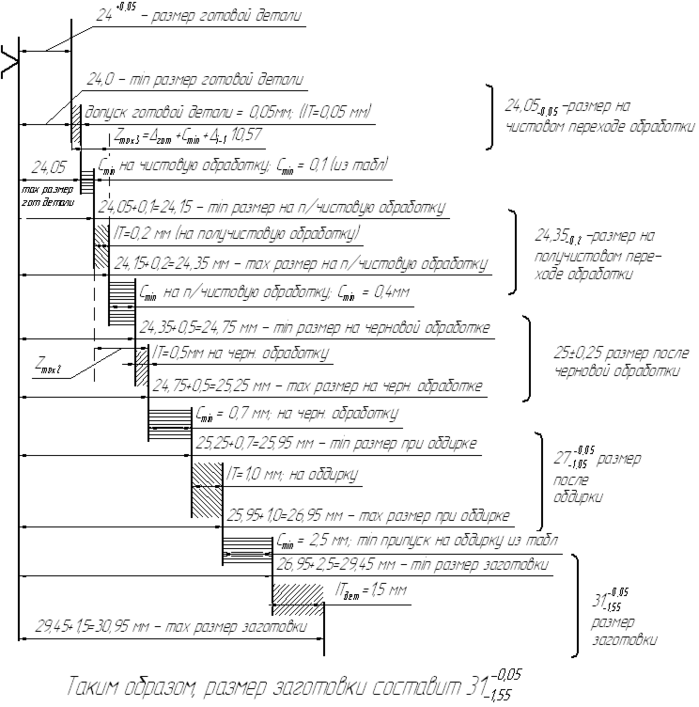 24 +0,05 – размер готовой детали
24,0 – min размер готовой детали
допуск готовой детали = 0,05мм; (IT=0,05 мм)
24,05-0,05 –размер на
чистовом переходе обработки
Zmax3 =Δгот +Cmin +Δi-1 10,57
24,05
max размер
гот детали
Cmin на чистовую обработку; Cmin = 0,1 (из табл)
24,05+0,1=24,15 – min размер на п/чистовую обработку
IT=0,2 мм (на получистовую обработку)
24,35-0,2 –размер на
получистовом пере-
ходе обработки
24,15+0,2=24,35 мм – max размер на п/чистовую обработку
Cmin на п/чистовую обработку; Cmin = 0,4мм
24,35+0,5=24,75 мм – min размер на черновой обработке
Zmax2
IT=0,5мм на черн. обработку
25±0,25 размер после
черновой обработки
24,75+0,5=25,25 мм – max размер на черн. обработке
Cmin = 0,7 мм; на черн. обработку
25,25+0,7=25,95 мм – min размер при обдирке
IT=1,0 мм; на обдирку
27-0,05-1,05 размер
после
обдирки
25,95+1,0=26,95 мм – max размер при обдирке
Cmin = 2,5 мм; min припуск на обдирку из табл
26,95+2,5=29,45 мм – min размер заготовки
ITдет = 1,5 мм
31-0,05-1,55
размер
заготовки
29,45+1,5=30,95 мм – max размер заготовки
Таким образом, размер заготовки составит 31-0,05-1,55